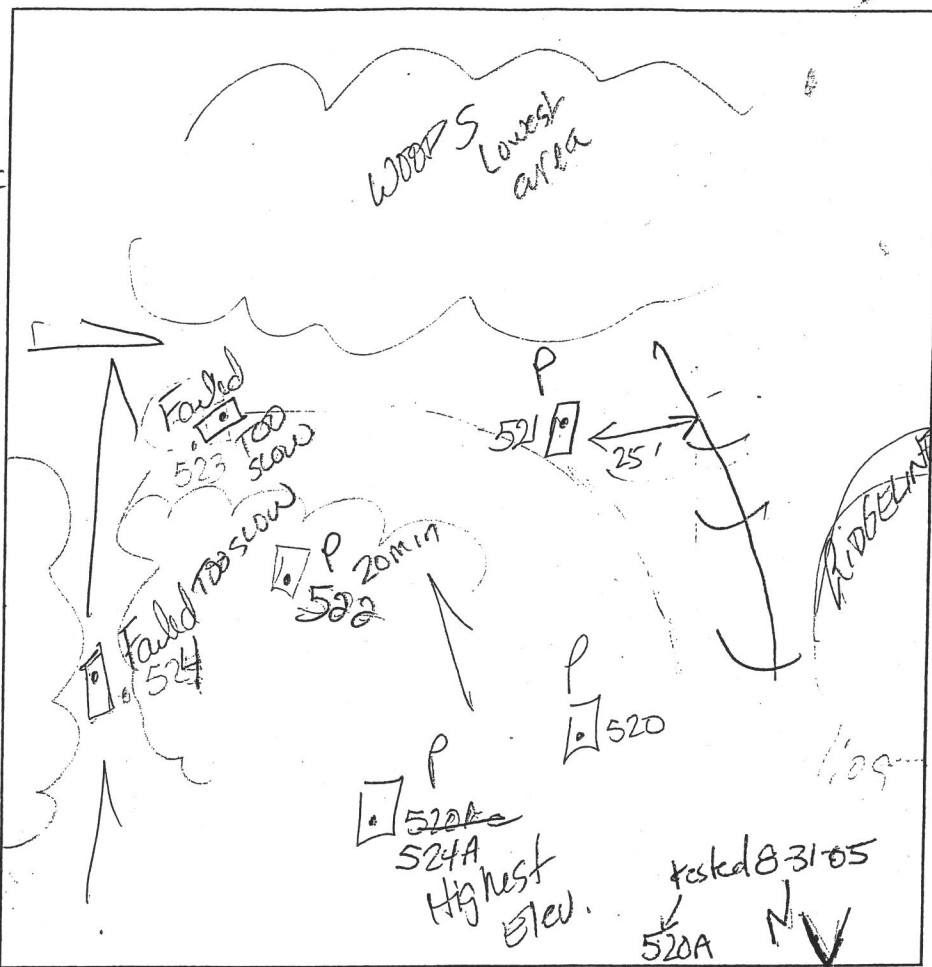 WOODS
Lowest
area
Failed
523
Too
slow
P
521
25'
RIDGELINE
Failed Too slow
524
P 20 min
522
P
520
P
520A
524A
Highest
Elev.
tested 8-31-05
520A
N